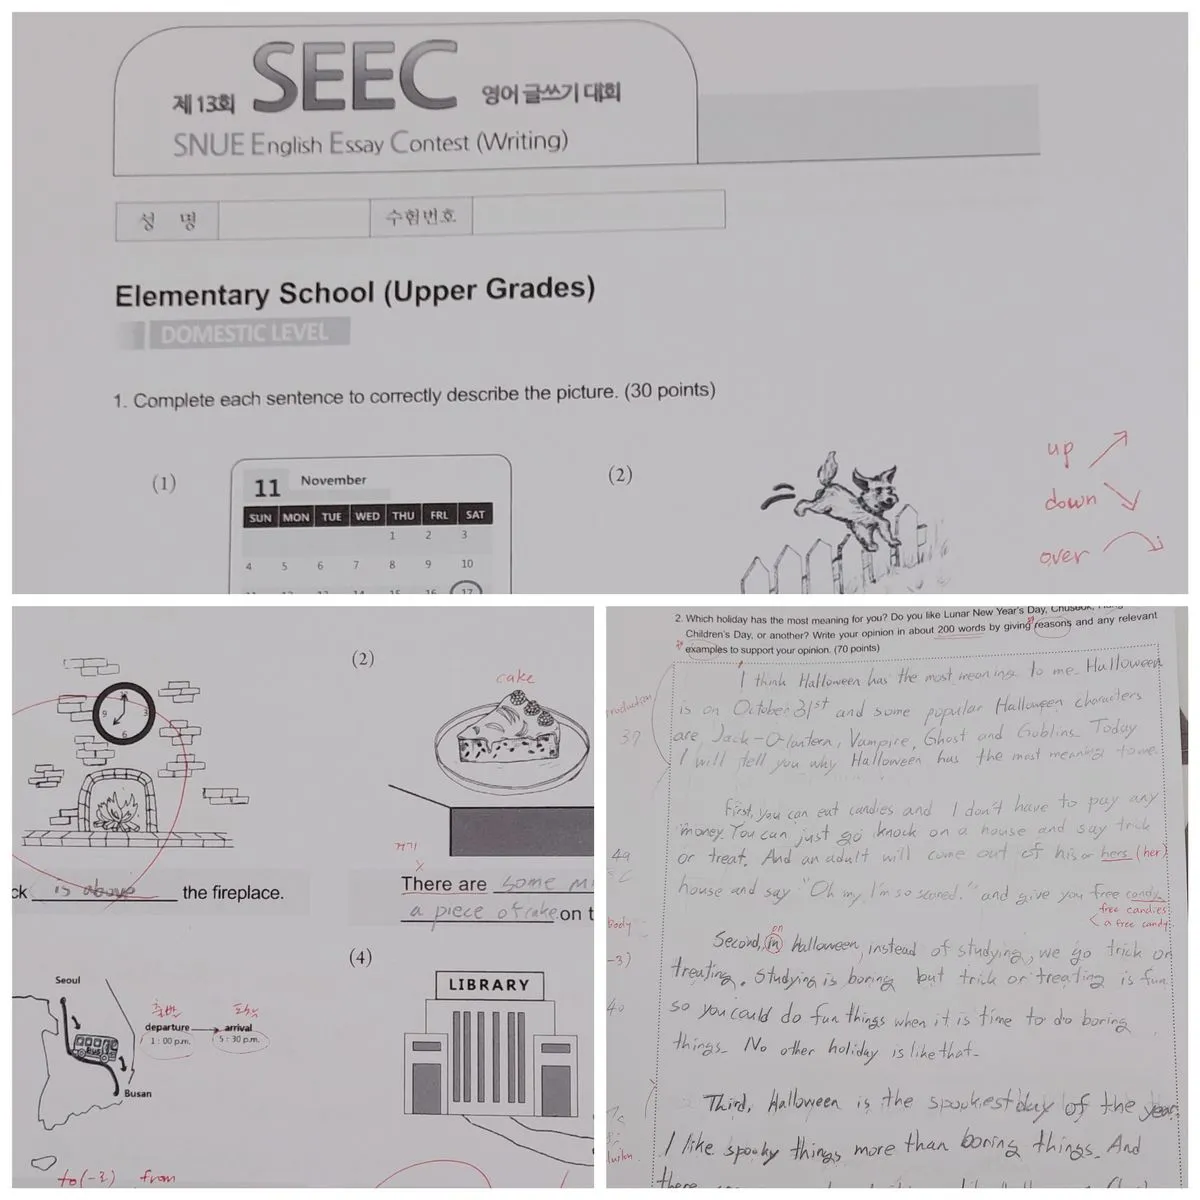 제13회 SEEC 영어 글쓰기 대회
SNUE English Essay Contest (Writing)
성 명 수험번호
Elementary School (Upper Grades)
DOMESTIC LEVEL
1. Complete each sentence to correctly describe the picture. (30 points)
(1)
11 November
SUN MON TUE WED THU FRI SAT
1 2 3
4 5 6 7 8 9 10
17
(2)
up
down
over
9 3
6
ck is above the fireplace.
(2)
cake
거기
There are some mi
a piece of cake on t
Seoul
BUS
Busan
출발 도착
departure arrival
1 : 00 p.m. 5 : 30 p.m.
to (-2) from
(4)
LIBRARY
2. Which holiday has the most meaning for you? Do you like Lunar New Year's Day, Chusuok,
Children's Day, or another? Write your opinion in about 200 words by giving reasons and any relevant
examples to support your opinion. (70 points)
I think Halloween has the most meaning to me. Halloween
is on October 31st and some popular Halloween characters
are Jack-O-lantern, Vampire, Ghost and Goblins. Today
I will tell you why Halloween has the most meaning to me.
37
First, you can eat candies and I don't have to pay any
money. You can just go knock on a house and say trick
or treat. And an adult will come out of his or hers (her)
49
house and say "Oh my, I'm so scared." and give you free candy.
free candies
a free candy
body
Second, in Halloween, instead of studying, we go trick or
on
-3)
treating. Studying is boring but trick or treating is fun
40
so you could do fun things when it is time to do boring
things. No other holiday is like that.
Third, Halloween is the spookiest day of the year.
I like spooky things more than boring things. And
there